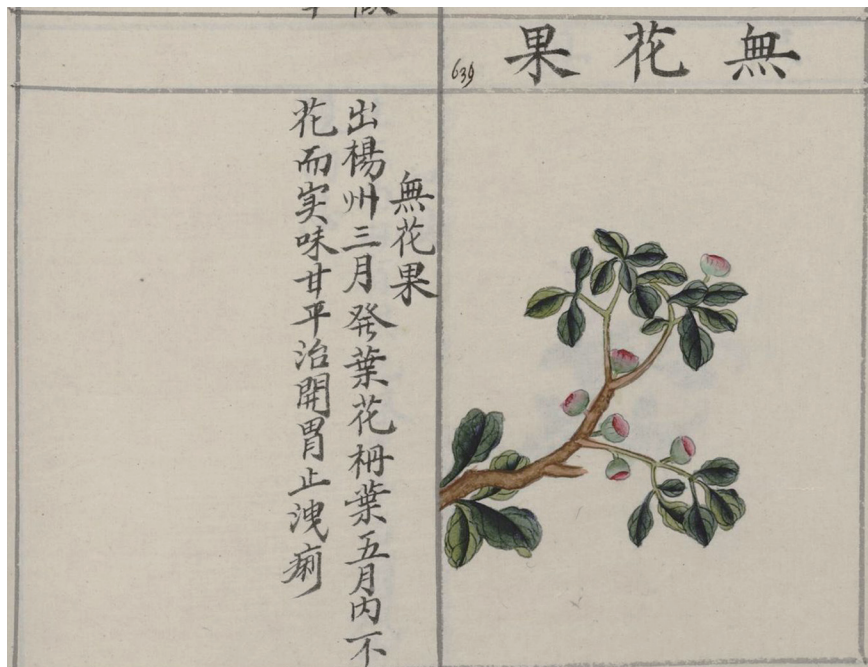 無花果
639
無花果
出楊州三月発葉花柵葉五月内不
花而实味甘平治開胃止洩痢